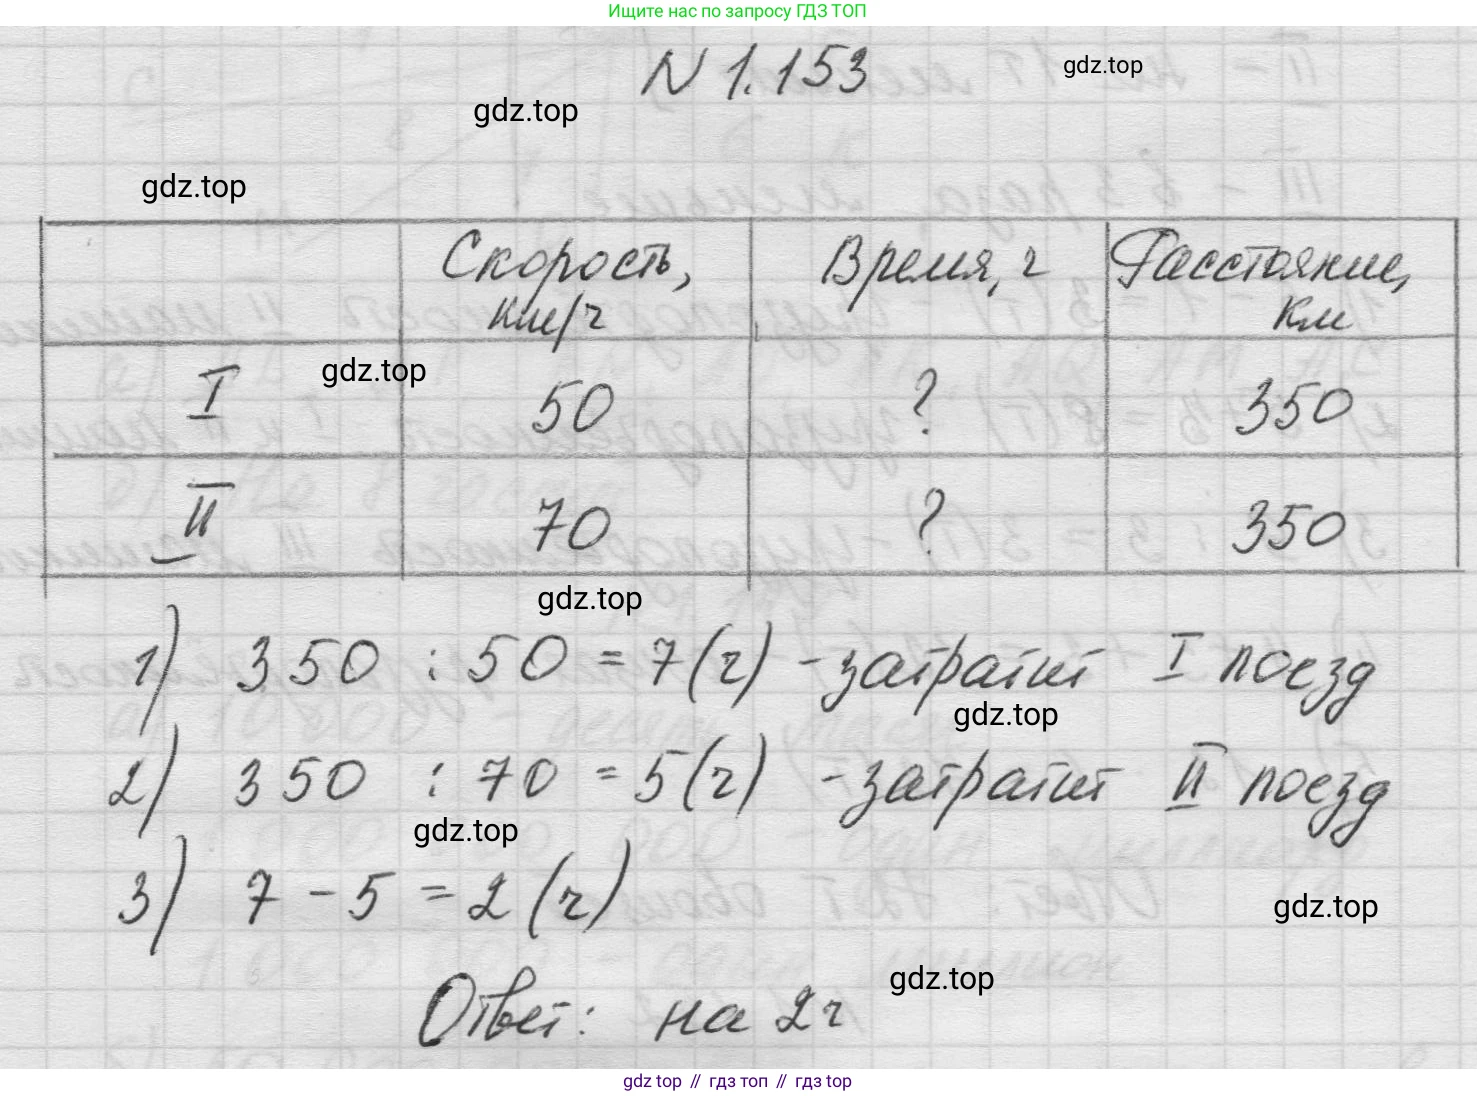 Ищите нас по запросу ГДЗ ТОП
N 1.153
gdz.top
gdz.top
gdz.top
Скорость, км/ч Время, ч Расстояние, км
I 50 ? 350
gdz.top
II 70 ? 350
gdz.top
1) 350 : 50 = 7 (ч) - затратит I поезд
gdz.top
2) 350 : 70 = 5 (ч) - затратит II поезд
gdz.top
3) 7 - 5 = 2 (ч)
gdz.top
gdz.top
Ответ: на 2 ч
gdz top // гдз топ // гдз top